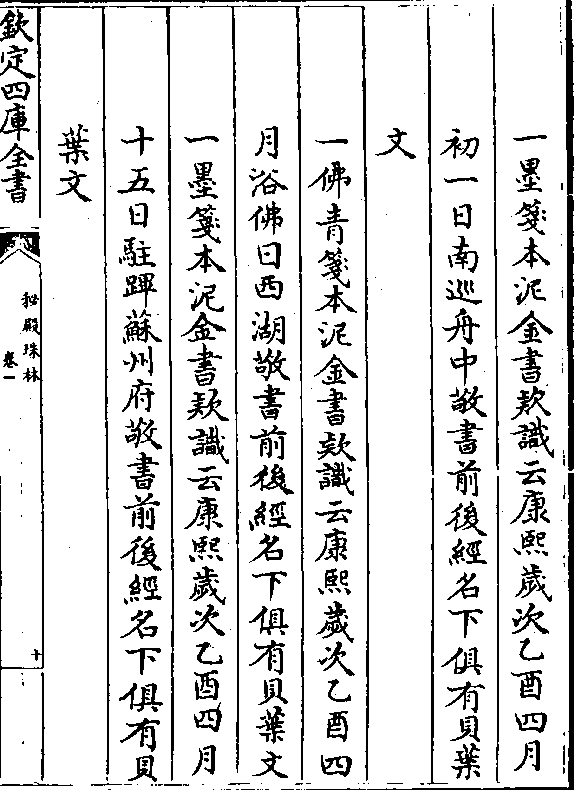 一墨箋本泥金書欵識云康熙歲次乙酉四月
初一日南巡舟中敬書前後經名下俱有貝葉
文
一佛青箋本泥金書欵識云康熙歲次乙酉四
月浴佛日西湖敬書前後經名下俱有貝葉文
一墨箋本泥金書欵識云康熙歲次乙酉四月
十五日駐蹕蘇州府敬書前後經名下俱有貝
葉文
欽定四庫全書
秘殿珠林
卷一
十